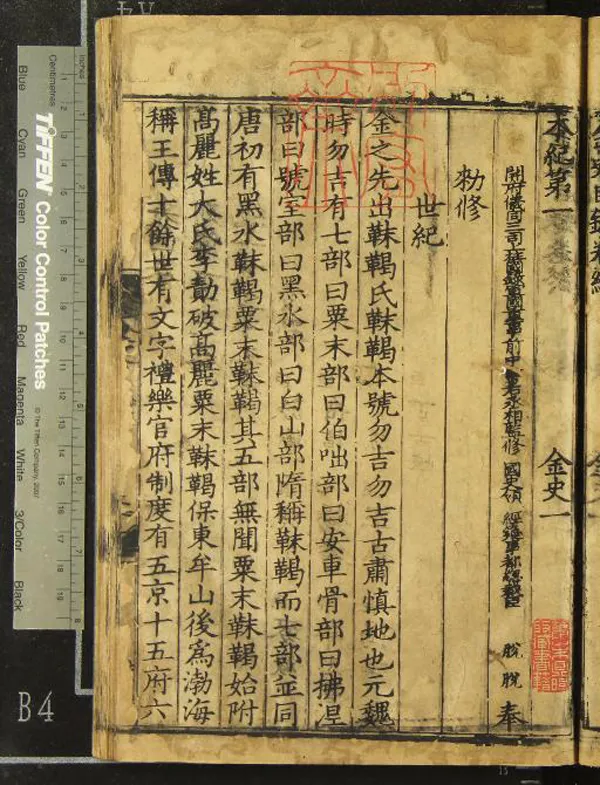 本紀第一
金史一
開府儀同三司
前中
右丞相監修
國史領
經筵事都總裁臣
脫脫
奉
勑修
世紀
金之先出靺鞨氏靺鞨本號勿吉勿吉古肅慎地也元魏
時勿吉有七部曰粟末部曰伯咄部曰安車骨部曰拂涅
部曰號室部曰黑水部曰白山部隋稱靺鞨而七部並同
唐初有黑水靺鞨粟末靺鞨其五部無聞粟末靺鞨始附
高麗姓大氏李勣破高麗粟末靺鞨保東牟山後為渤海
稱王傳十餘世有文字禮樂官府制度有五京十五府六
Inches
Centimetres
TIFFEN Color Control Patches
© The Tiffen Company, 2007
Blue
Cyan
Green
Yellow
Red
Magenta
White
3/Color
Black
B4
A4